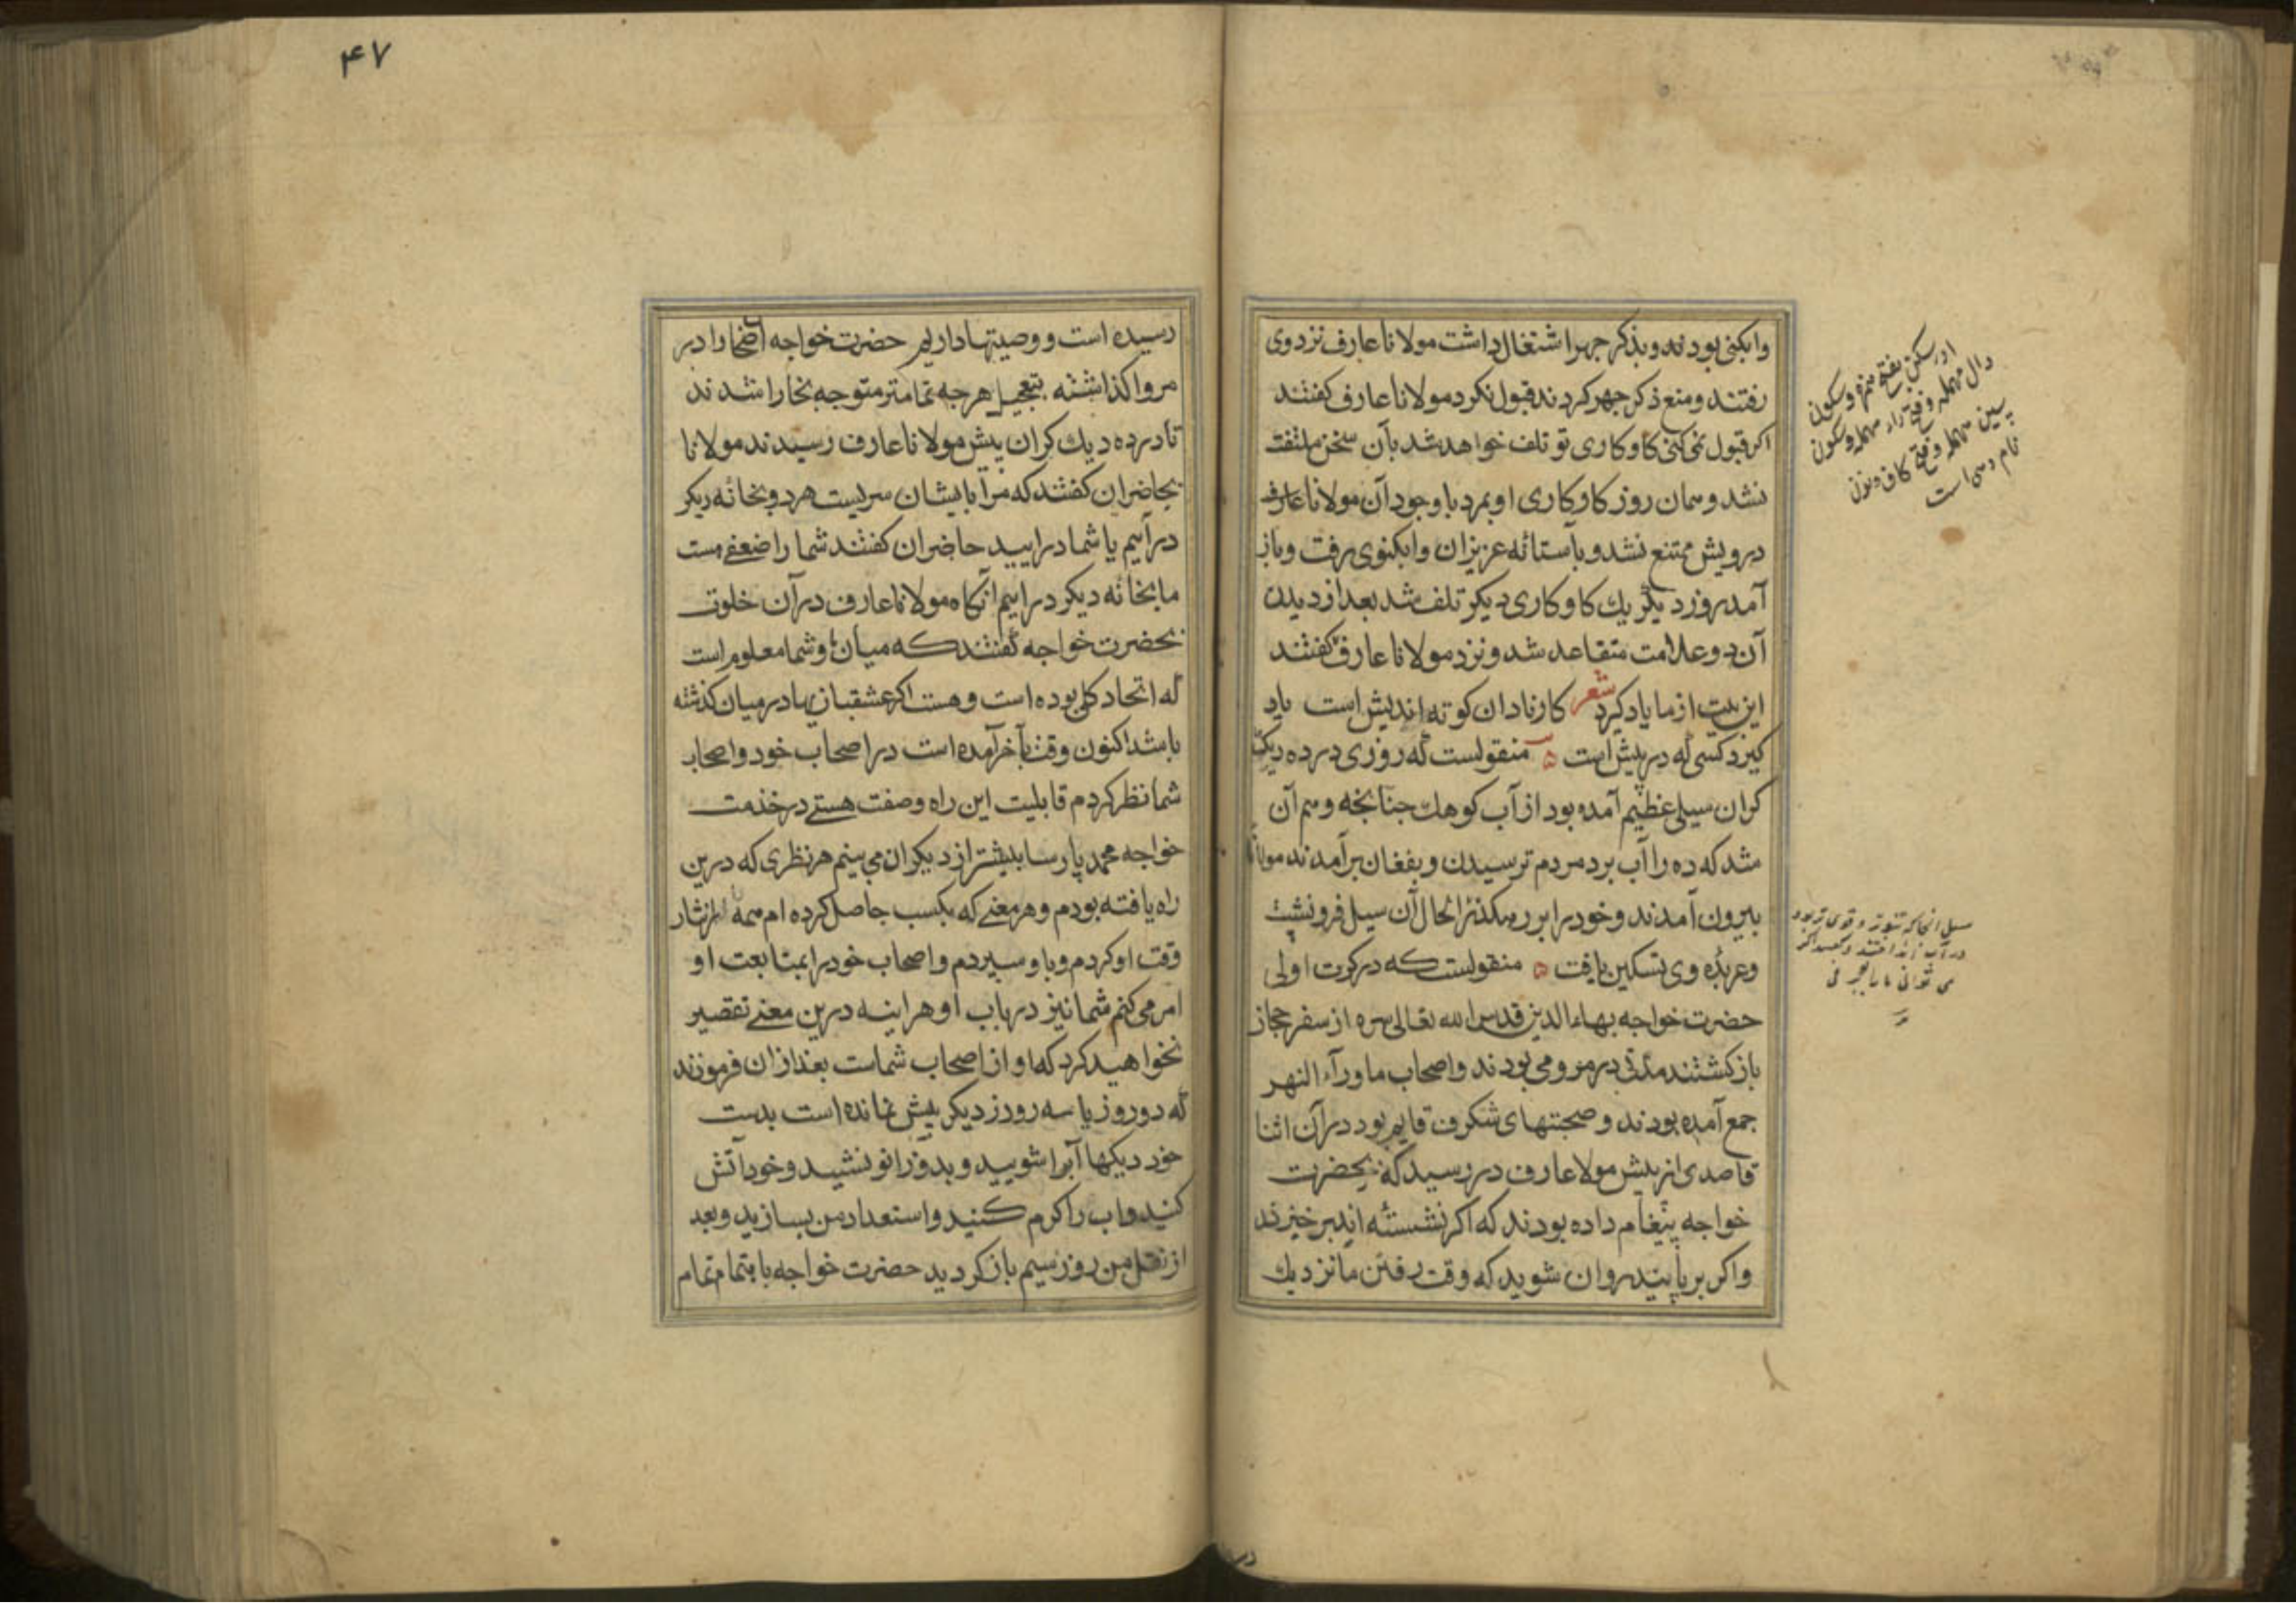 وابکنی بودند و بذکر جهر اشتغال داشت مولانا عارف نزد وی
رفتند و منع ذکر جهر کردند قبول نکرد مولانا عارف کفتند
اکر قبول نمی کنی کاو کاری تو تلف خواهد شد بآن سخن ملتفت
نشد و همان روز کاو کاری او بمرد با وجود آن مولانا عارف
درویش ممتنع نشد و بآستانه عزیزان وابکنوی رفت و باز
آمد روز دیکر یک کاو کاری دیکر تلف شد بعد از دیدن
آن دو علامت متقاعد شد و نزد مولانا عارف کفتند
این بیت از ما یاد کیرد شعر کار نادان کوته اندیش است یاد
کیرد کسی که در پیش است منقولست که روزی در ده دیک
کران سیلی عظیم آمده بود از آب کوهک جنانجه وهم آن
شد که ده را آب برد مردم ترسیدن و بفغان برآمدند مولانا
بیرون آمدند و خود را بر رهکذر انحال آن سیل فرونشست
و عربده وی تسکین یافت منقولست که در کرت اولی
حضرت خواجه بهاء الدین قدس الله تعالی سره از سفر حجاز
بازکشتند مدتی در مرو می بودند و اصحاب ماورآء النهر
جمع آمده بودند و صحبتهای شکرف قایم بود در آن اثنا
قاصدی از پیش مولا عارف در رسید که بحضرت
خواجه پیغام داده بودند که اکر نشسته اید برخیزند
واکر بر پایید روان شوید که وقت رفتن ما نزدیک
سکون
دال مهمله و فتح راء مهمله و سکون
سین مهمله و فتح کاف و نون
نام دهی است
۴۷
رسیده است و وصیتها داریم حضرت خواجه اصحاب را در
مرو اکذاشته بتعجیل هرجه تمامتر متوجه بخارا شدند
تا در ده دیک کران پیش مولانا عارف رسیدند مولانا
بحاضران کفتند که مرا با یشان سریست هر دو بخانه دیکر
درآییم یا شما درایید حاضران کفتند شما را ضعفی هست
ما بخانه دیکر دراییم آنکاه مولانا عارف در آن خلوت
بحضرت خواجه کفتند که میان ما و شما معلوم است
که اتحاد کلی بوده است و هست اکر عشقبازیها در میان کذشته
باشد اکنون وقت بآخر آمده است در اصحاب خود و اصحاب
شما نظر کردم قابلیت این راه و صفت هستی در خدمت
خواجه محمد پارسا بیشتر از دیکران می بینم هر نظری که درین
راه یافته بودم و هر معنی که بکسب حاصل کرده ام همه را نثار
وقت او کردم و باو سپردم و اصحاب خود را بمتابعت او
امر می کنم شما نیز در باب او هراینه درین معنی تقصیر
نخواهید کرد که او از اصحاب شماست بعد از ان فرمودند
که دو روز یا سه روز دیکر بیش نمانده است بدست
خود دیکها آبرا شویید و بدو زانو نشید و خود آتش
کنید و اب را کرم کنید و استعداد من بسازید و بعد
از نقل من روز سیم باز کردید حضرت خواجه با بتمام تمام